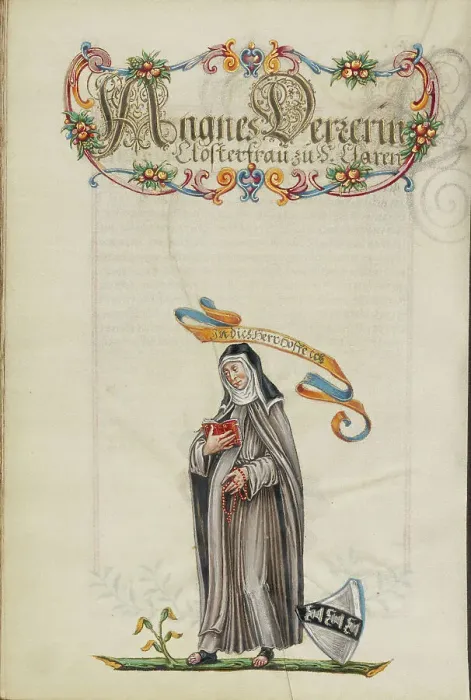 Angnes Derrerin
Closterfrau zu S. Claren
in dich Herr hoffe ich